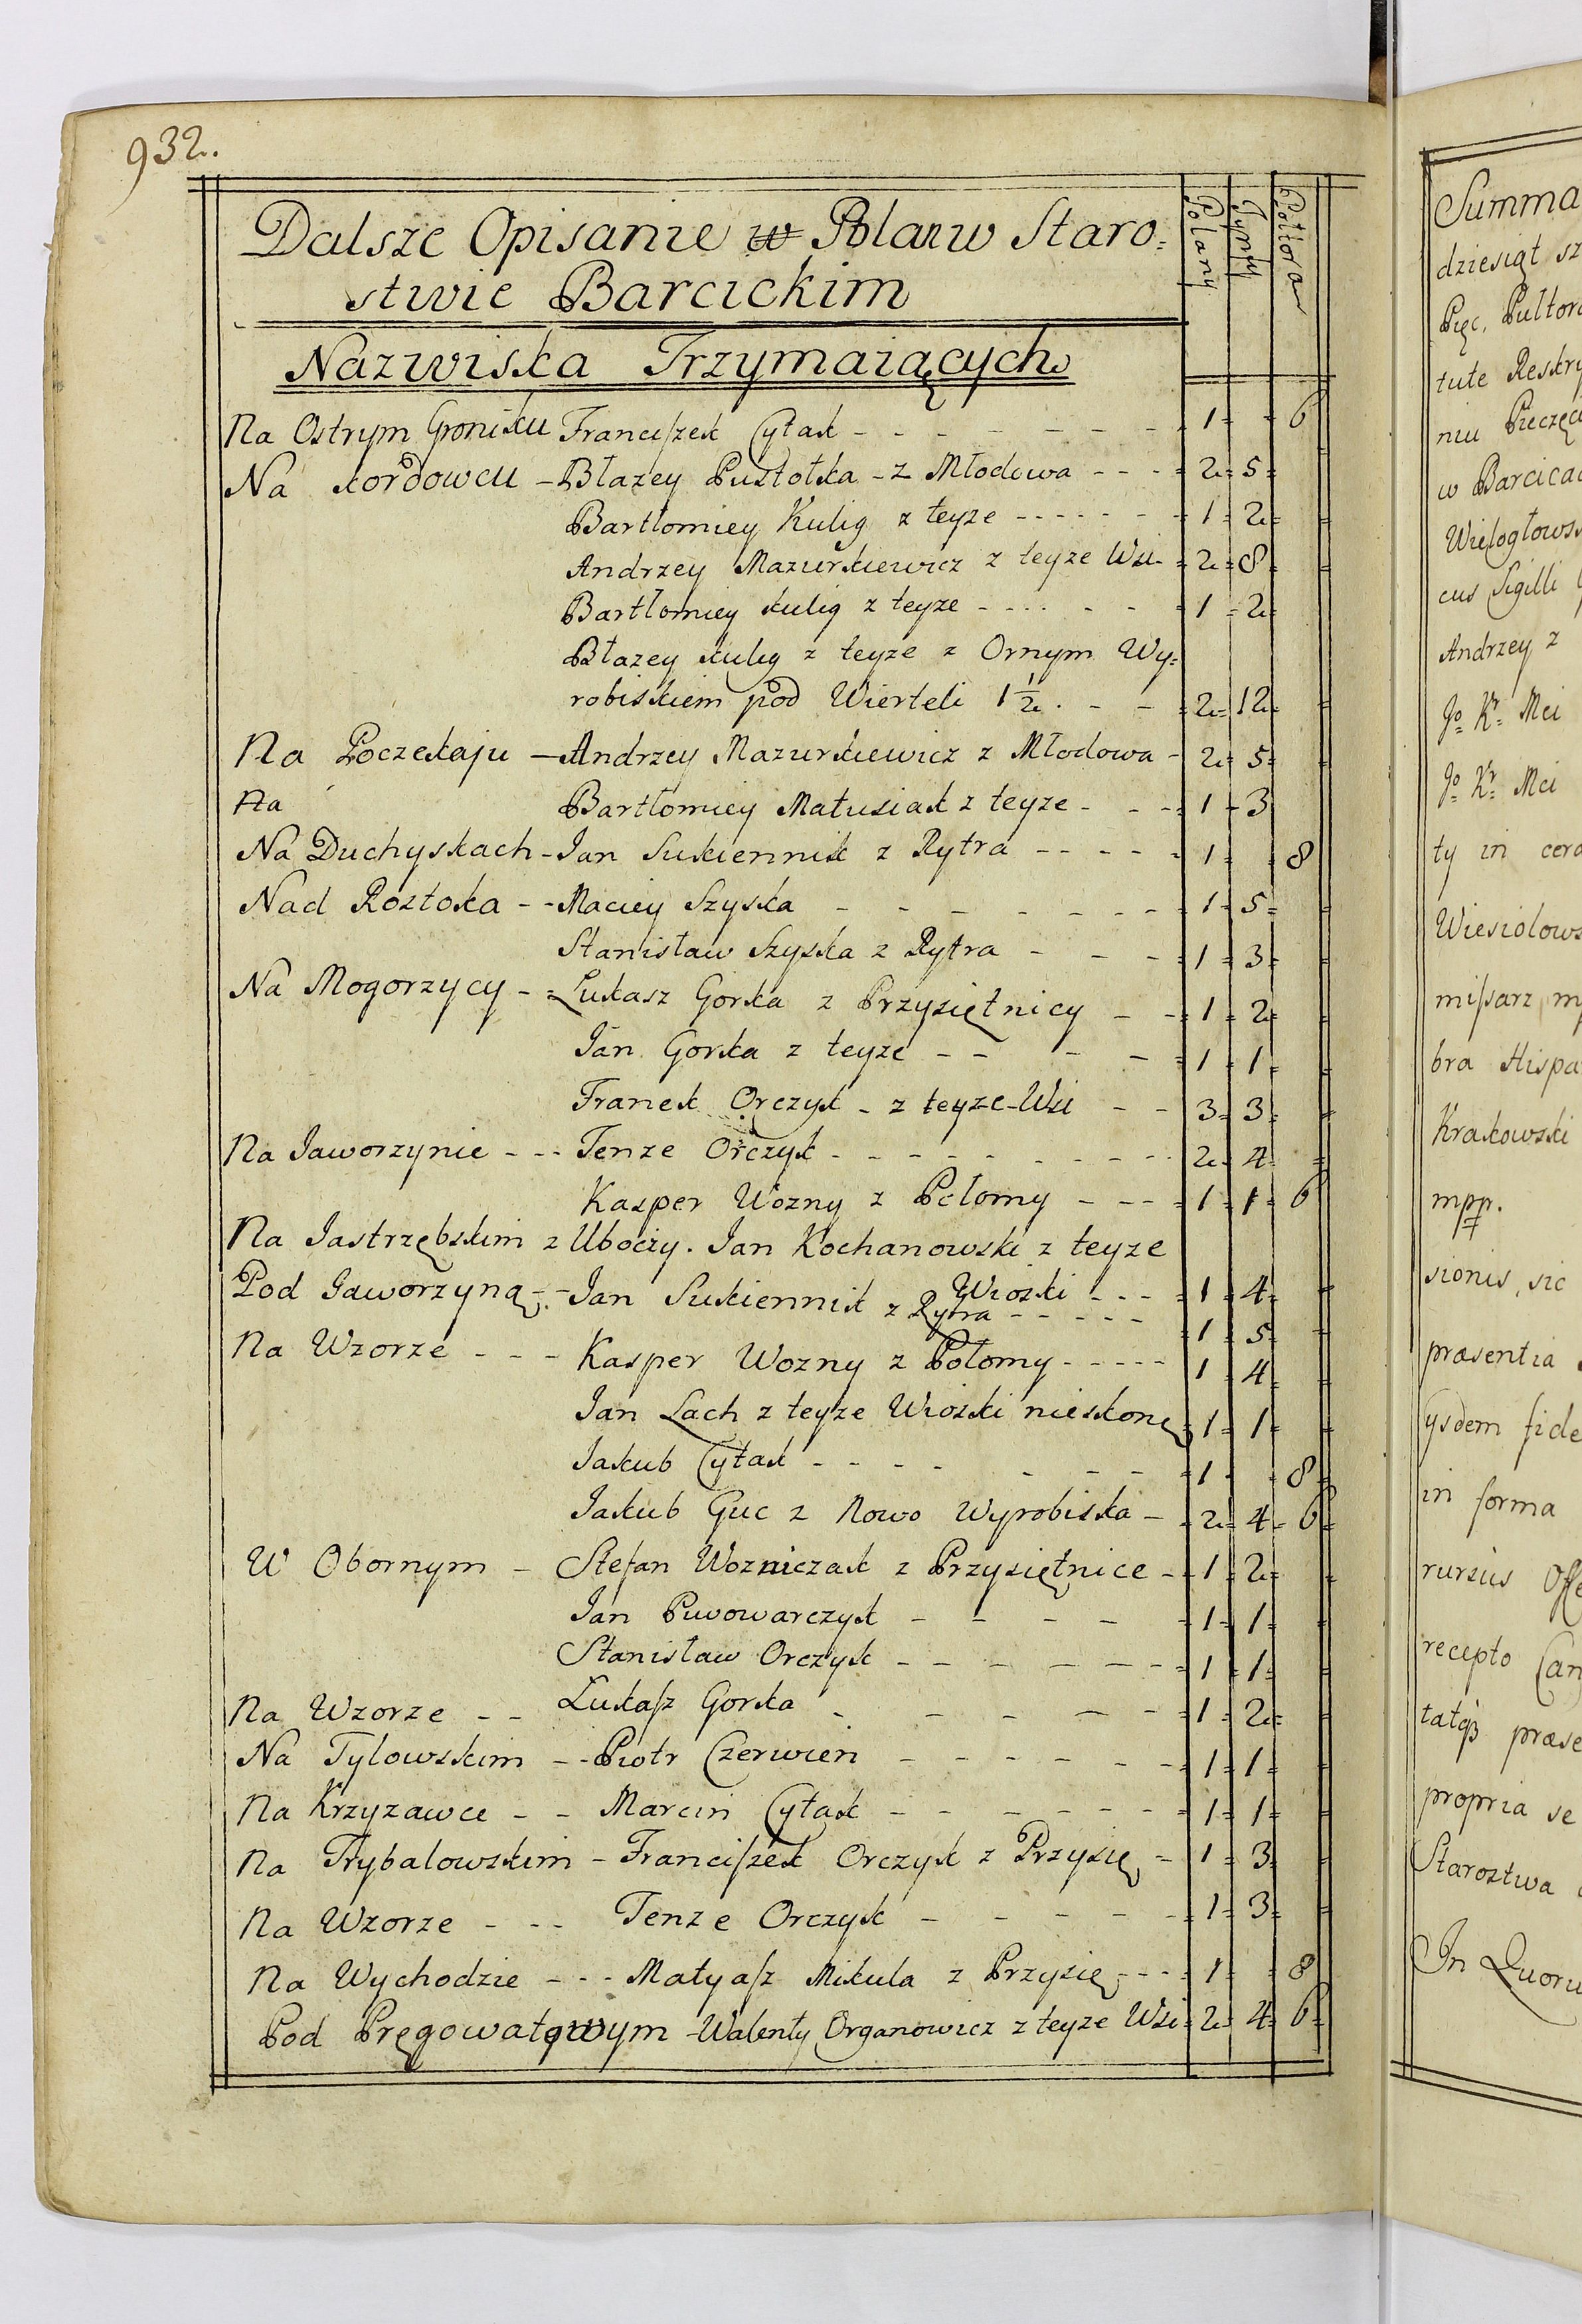 932.
Dalsze Opisanie w Polan w Staro=
stwie Barcickim
Nazwiska Trzymaiących
Polany
Tynfy
Połtora
Na Ostrym Groniku Franciszek Cytak - - - - - - - - 1 = - 6
Na Kordowcu - Błazey Pustołka - z Młodowa - - - = 2 = 5 =
Bartłomiey Kulig z teyze - - - - - - = 1 = 2 =
Andrzey Mazurkiewicz z teyze Wsi = 2 = 8
Bartłomiey Kulig z teyze - - - - - - = 1 = 2
Błazey Kulig z teyze z Ornym Wy=
robiskiem pod Wierteli 1 1/2 . - - = 2 = 12
Na Poczekaju - Andrzey Mazurkiewicz z Młodowa - 2 = 5 =
Na Bartłomiey Matusiak z teyze - - - = 1 - 3
Na Duchyskach - Jan Sukiennik z Rytra - - - - - 1 = - 8
Nad Roztoka - - Maciey Szyska - - - - - - - - 1 - 5 =
Stanisław Szyska z Rytra - - - = 1 = 3 =
Na Mogorzycy - = Łukasz Gorka z Przysiętnicy - - = 1 = 2 =
Jan Gorka z teyze - - - - = 1 = 1 =
Franek Orczyk - z teyze Wsi - - 3 = 3 =
Na Jaworzynie - - - Tenze Orczyk - - - - - - - - - 2 = 4 =
Kasper Wozny z Połomy - - - = 1 = 1 = 6
Na Jastrzębskim z Uboczy. Jan Kochanowski z teyze
Wioski - - - = 1 = 4 =
Pod Jaworzyną - - Jan Sukiennik z Rytra - - - - - = 1 = 5 =
Na Wzorze - - - Kasper Wozny z Połomy - - - - - 1 = 4
Jan Lach z teyze Wioski nieskonę = 1 = 1 =
Jakub Cytak - - - - - - - = 1 - - 8
Jakub Guc z Nowo Wyrobiska - = 2 = 4 = 6 =
W Obornym - Stefan Wozniczak z Przysiętnice - = 1 = 2 =
Jan Puwowarczyk - - - - = 1 = 1 =
Stanisław Orczyk - - - - - - = 1 = 1 =
Na Wzorze - - Łukasz Gorka - - - - - = 1 = 2 =
Na Tylowskim - - Piotr Czerwień - - - - - - = 1 = 1 =
Na Krzyzawce - - Marcin Cytak - - - - - - - = 1 = 1 =
Na Trybalowskim - Franciszek Orczyk z Przysię - 1 = 3 =
Na Wzorze - - - Tenze Orczyk - - - - - - = 1 = 3 =
Na Wychodzie - - - Matyasz Mikula z Przysię - - - = 1 = - 8
Pod Pręgowatowym - Walenty Organowicz z teyze Wsi = 2 = 4 = 6 =
Summa
dziesiąt sz
Pięc, Pułtora
tute Reskry
niu Pieczęci
w Barcicac
Wielogłowsk
cus Sigilli
Andrzey z
Jo Kr Mci
Jo Kr Mci
ty in cera
Wiesiolows
missarz m
bra Hispa
Krakowski
mpp.
sionis, sic
præsentia
ysdem fide
in forma
rursus Offe
recepto Can
tatqz præse
propria se
Starostwa
In Quoru